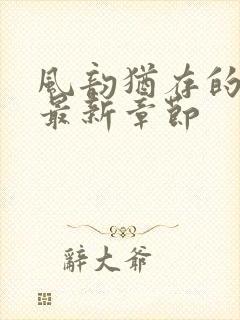 風韵猶存的
最新章節
辭大爺